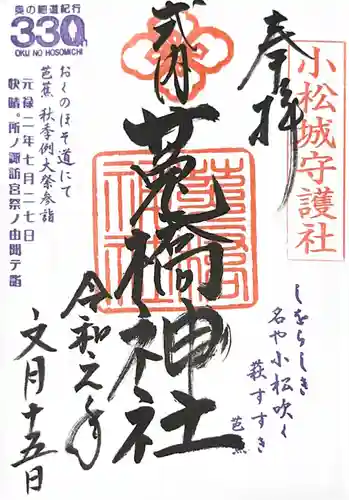 小松城守護社
奉拝
式内
莵橋神社
しをらしき
名や小松吹く
萩すすき
芭蕉
令和元年
文月十五日
奥の細道紀行
330年
OKU NO HOSOMICHI
おくのほそ道にて
芭蕉 秋季例大祭参詣
元禄二年七月二七日
快晴。所ノ諏訪宮祭ノ由聞テ詣